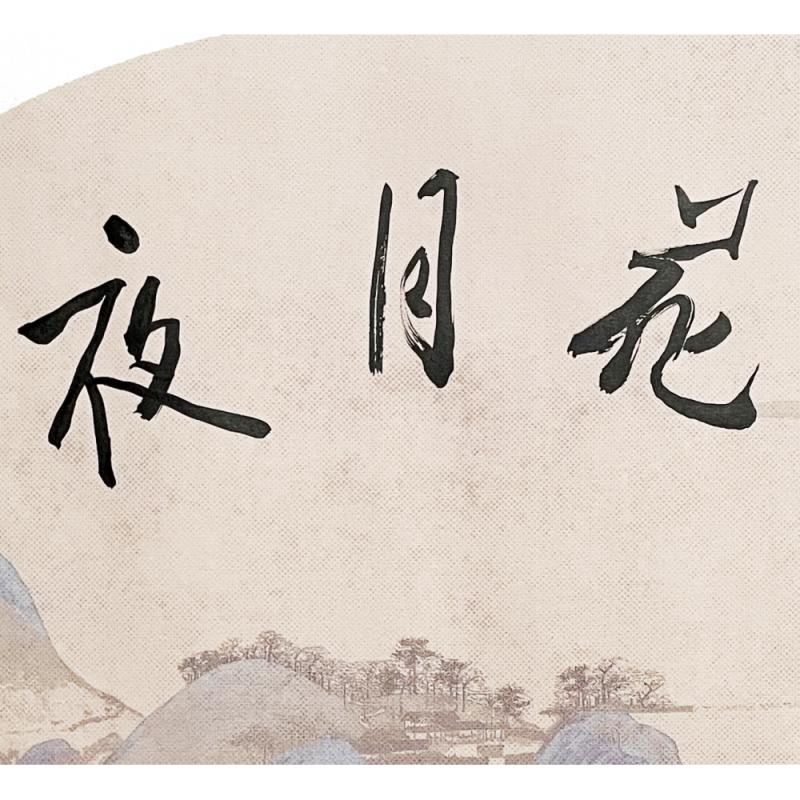 花月夜